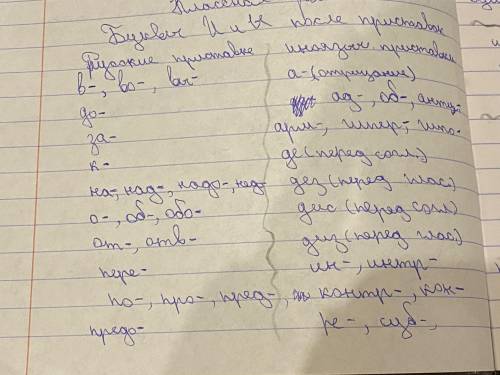 Классная
Буквы И и Ы после приставок
Русские приставки иноязыч. приставки
в-, во-, вы- а-(отрицание)
до- ад-, об-, анти-
за-
к- де(перед согл.)
на-, над-, надо-, над- дез(перед глас.)
о-, об-, обо- дис(перед согл)
от-, диз(перед глас.)
пере- ин-, интр-
по-, про-, пред-, контр-, кон-
предо- ре-, суб-,